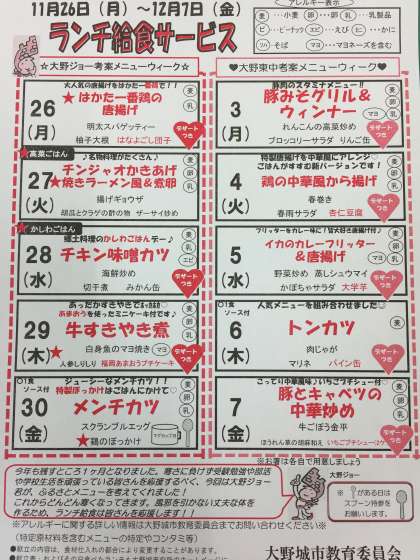 11月26日（月）～12月7日（金）
ランチ給食サービス
アレルギー表示
☆大野ジョー考案メニューウィーク☆
♥大野東中考案メニューウィーク♥
26
(月)
大人気の唐揚げをはかた一番鶏で！！
★はかた一番鶏の
唐揚げ
明太スパゲッティー
柚子大根 はなよごし団子
デザートつき
★高菜ごはん
27
(火)
♪名物料理がたくさん♪
チンジャオかきあげ
★焼きラーメン風＆煮卵
揚げギョウザ
胡瓜とクラゲの酢の物 ザーサイ炒め
★かしわごはん
28
(水)
郷土料理のかしわごはんデー♪
チキン味噌カツ
海鮮炒め
切干煮 みかん缶
デザートつき
29
(木)
あったかすきやきでまぁ食おう
あまおうを使ったミニケーキ付です♪
牛すきやき煮
★白身魚のマヨ焼き
人参しりしり 福岡あまおうプチケーキ
デザートつき
○1食
ソース付
30
(金)
ジューシーなメンチカツ！！
特製ぼっかけはごはんにかけて♡
メンチカツ
スクランブルエッグ
★鶏のぼっかけ
3
(月)
豚肉のスタミナメニュー!!
豚みそグリル＆
ウィンナー
れんこんの高菜炒め
ブロッコリーサラダ りんご缶
デザートつき
4
(火)
特製唐揚げを中華風にアレンジ♡
ごはんがすすむ新バージョンです！
鶏の中華風から揚げ
春巻き
春雨サラダ 杏仁豆腐
デザートつき
5
(水)
フリッターをカレー味に！皆大好き唐揚げ付♪
イカのカレーフリッター
＆唐揚げ
野菜炒め 蒸しシュウマイ
かぼちゃサラダ 大学芋
デザートつき
○1食
ソース付
6
(木)
人気メニューを組み合わせました☺
トンカツ
肉じゃが
マリネ パイン缶
デザートつき
7
(金)
こってり中華風味♪いちごプチシュー付♡
豚とキャベツの
中華炒め
牛ごぼう金平
ほうれん草の胡麻和え いちごプチシュー(2ケ)
デザートつき
※お箸は各自で用意しましょう
今年も残すところ1ヶ月となりました。寒さに負けず受験勉強や部活
や学校生活を頑張っている皆さんを応援するべく、今回は大野ジョー
君が、ふるさとメニューを考えてくれました！
これからどんどん寒くなってきます。風邪を引かない丈夫な体を
作るため、ランチ給食は皆さんを応援します！！
大野ジョー
がある日は
スプーン持参を
お願いします。
※アレルギーに関する詳しい情報は大野城市教育委員会までお問い合わせください☆
（特定原材料を含むメニューの特定やコンタミ等）
大野城市教育委員会